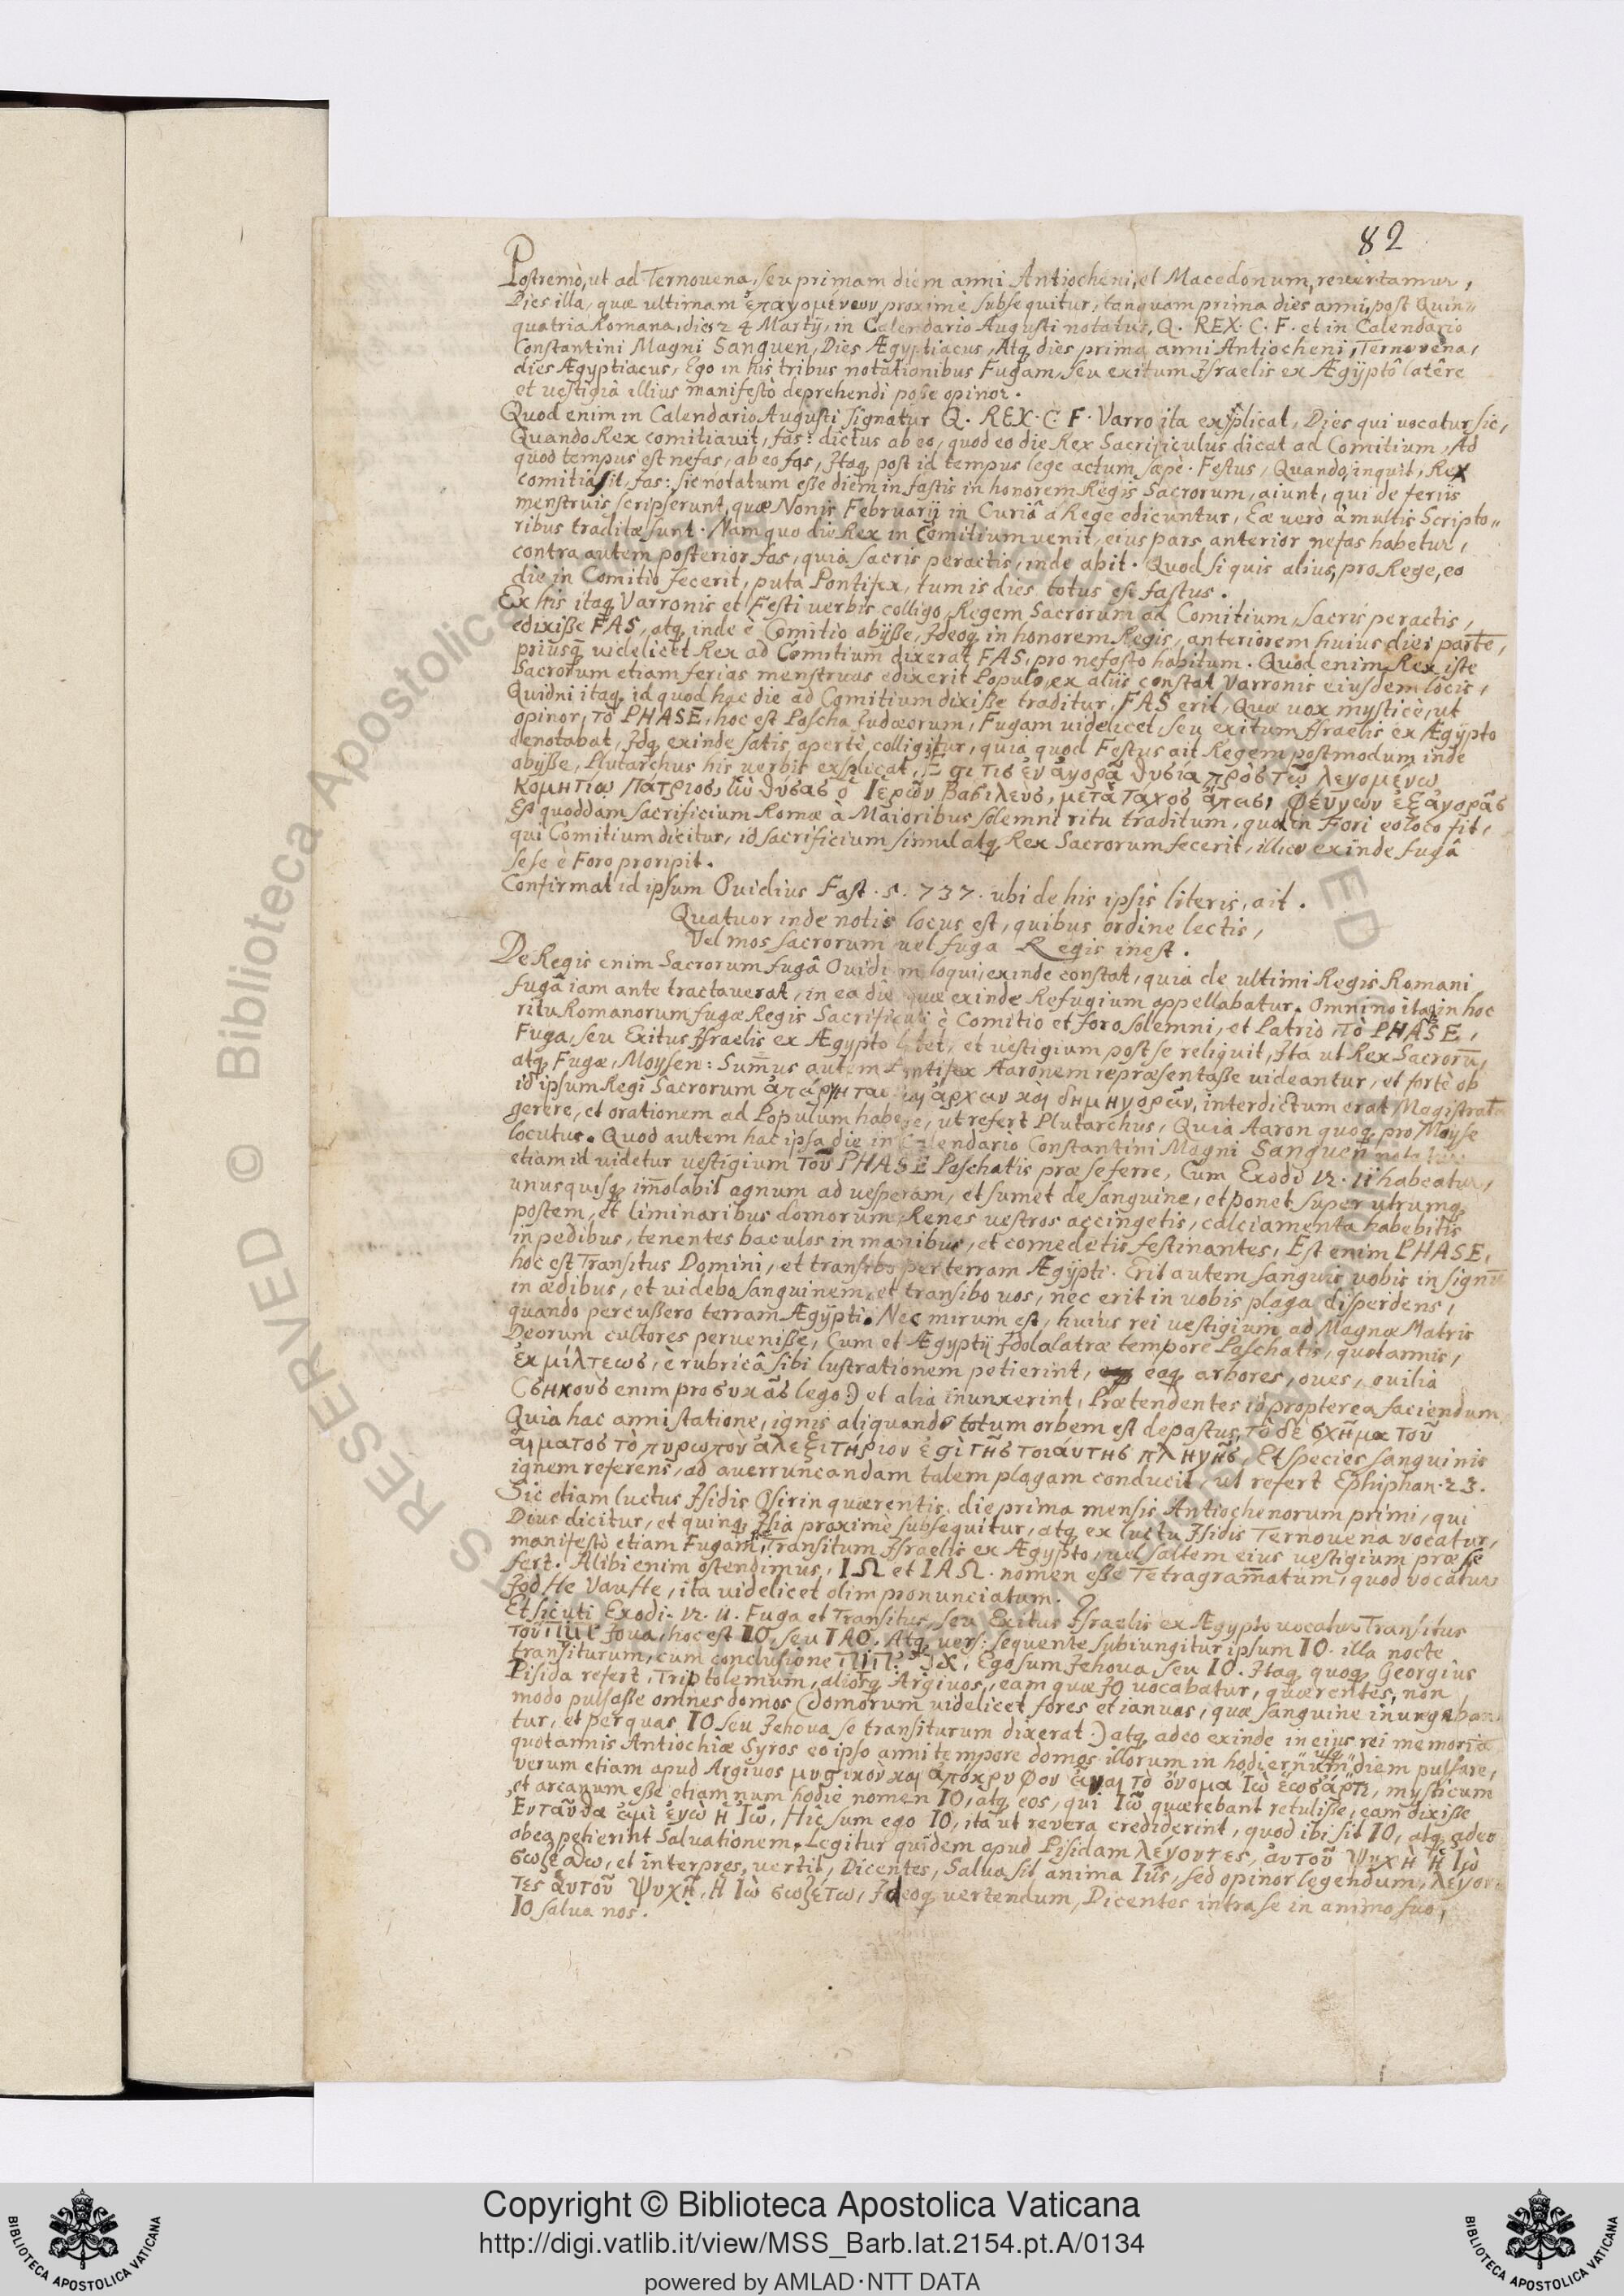 82
Postremò, ut ad Ternovena, seu primam diem anni Antiocheni, et Macedonum, revertamur,
Dies illa, quæ ultimam ἐπαγομένων proximè subsequitur, tanquam prima dies anni, post Quin„
quatria Romana, dies 24 Martij, in Calendario Augusti notatur, Q. REX. C. F. et in Calendario
Constantini Magni Sanguen, Dies Ægyptiacus, Atq dies prima anni Antiocheni, Ternovena,
dies Ægyptiacus, Ego in his tribus notationibus Fugam, seu exitum Israelis ex Ægyptô latêre
et vestigià illius manifestò deprehendi posse opinor.
Quod enim in Calendario Augusti signatur Q. REX. C. F. Varro ita explicat, Dies qui vocatur sic,
Quando Rex comitiavit, fas: dictus ab eo, quod eo die Rex Sacrificulus dicat ad Comitium, Ad
quod tempus est nefas, ab eo fas, Itaq post id tempus lege actum sæpè. Festus, Quando, inquit, Rex
comitiassit, fas: sic notatum esse diem in fastis in honorem Regis Sacrorum, aiunt, qui de feriis
menstruis scripserunt, quæ Nonis Februarij in Curiâ a Rege edicuntur, Eæ verò à multis Scripto„
ribus traditæ sunt. Nam quo die Rex in Comitium venit, eius pars anterior nefas habetur,
contra autem posterior fas, quia sacris peractis, inde abit. Quod si quis alius, pro Rege, eo
die in Comitio fecerit, puta Pontifex, tum is dies totus est fastus.
Ex his itaq Varronis et Festi verbis colligo, Regem Sacrorum ad Comitium, sacris peractis,
edixisse FAS, atq inde è Comitio abijsse, Ideoq in honorem Regis, anteriorem huius diei partē,
priusq videlicet Rex ad Comitium dixerat FAS, pro nefasto habitum. Quod enim Rex iste
Sacrorum etiam ferias menstruas edixerit Populo, ex aliis constat Varronis eiusdem locis,
Quidni itaq id quod hac die ad Comitium dixisse traditur, FAS erit, Quæ vox mysticè, ut
opinor, τὸ PHASE, hoc est Pascha Iudæorum, Fugam videlicet, seu exitum Israelis ex Ægypto
denotabat, Idq exinde satis apertè colligitur, quia quod Festus ait Regem postmodum inde
abijsse, Plutarchus his verbis explicat, Ἐςι τις ἐν ἀγορᾷ θυσία πρὸς τῷ λεγομένῳ
Κομητίῳ Πάτριος, ἣν θύσας ὁ Ἱερῶν Βασιλεὺς, μετὰ τάχος ἄπεισι φεύγων ἐξ ἀγορᾶς
Est quoddam sacrificium Romæ à Maioribus solemni ritu traditum, quod in Fori eo loco fit,
qui Comitium dicitur, id sacrificium simul atq Rex Sacrorum fecerit, illico exinde fugâ
sese è Foro proripit.
Confirmat id ipsum Ovidius Fast. 5. 737. ubi de his ipsis literis, ait.
Quatuor inde notis locus est, quibus ordine lectis,
Vel mos sacrorum vel fuga Regis inest.
De Regis enim Sacrorum fugâ Ovidium loqui, exinde constat, quia de ultimi Regis Romani
fugâ iam ante tractaverat, in ea die quæ exinde Refugium appellabatur. Omnino itaq in hoc
ritu Romanorum fugæ Regis Sacrificuli è Comitio et foro solemni, et Patrio, τὸ PHASE,
Fuga, seu Exitus Israelis ex Ægypto latet, et vestigium post se reliquit, Ita ut Rex Sacrorū,
atq Fugæ, Moysen: Sum̄us autem Pontifex Aaronem repræsentasse videantur, et fortè ob
id ipsum Regi Sacrorum ἀπείρηται καὶ ἄρχειν καὶ δημηγορᾶν, interdictum erat Magistratū
gerere, et orationem ad Populum habere, ut refert Plutarchus, Quia Aaron quoq pro Moyse
locutus. Quod autem hac ipsa die in Calendario Constantini Magni Sanguen notatur
etiam id videtur vestigium τοῦ PHASE Paschatis præ se ferre, Cum Exodi 12. 11 habeatur,
unusquisq im̄olabit agnum ad vesperam, et sumet de sanguine, et ponet super utrumq
postem, et liminaribus domorum, Renes vestros accingetis, calciamenta habebitis
in pedibus, tenentes baculos in manibus, et comedetis festinantes, Est enim PHASE,
hoc est Transitus Domini, et transibo per terram Ægypti. Erit autem sanguis vobis in signū
in ædibus, et videbo sanguinem, et transibo vos, nec erit in vobis plaga disperdens,
quando percussero terram Ægypti. Nec mirum est, huius rei vestigium ad Magnæ Matris
Deorum cultores pervenisse, Cum et Ægyptij Idolalatræ tempore Paschatis, quotannis,
ἐκ μίλτεως, è rubricâ sibi lustrationem petierint, eaq arbores, oves, ovilia
(σηκοὺς enim pro συκᾶς lego:) et alia inunxerint, Prætendentes id propterea faciendum,
Quia hac anni statione, ignis aliquando totum orbem est depastus, τὸ δὲ σχῆμα τοῦ
αἵματος τὸ πυρωπὸν ἀλεξιτήριον ἐςὶ τῆς τοιάυτης πληγῆς, Et species sanguinis
ignem referens, ad averruncandam talem plagam conducit, ut refert Ephiphan. 23.
Sic etiam luctus Isidis Osirin quærentis, die prima mensis Antiochenorum primi, qui
Dius dicitur, et quinq Isia proximè subsequitur, atq ex luctu Isidis Ternovena vocatur,
manifestò etiam Fugam, Transitum Israelis ex Ægypto, vel saltem eius vestigium præ se
fert. Alibi enim ostendimus, ΙΩ et ΙΑΩ. nomen esse Tetragram̄atum, quod vocatur
Iod He Vau He, ita videlicet olim pronunciatum.
Et sicuti Exodi. 12. 11. Fuga et Transitus, seu Exitus Israelis ex Ægypto vocatur Transitus
τοῦ יהוה Iova, hoc est IO, seu IAO. Atq vers: sequente subiungitur ipsum IO. illa nocte
transiturum, cum conclusione אני יהוה, Ego sum Iehova seu IO. Itaq quoq Georgius
Pisida refert, Triptolemum, aliosq Argivos, eam quæ IO vocabatur, quærentes, non
modo pulsasse omnes domos (domorum videlicet fores et ianuas, quæ sanguine inungeban
tur, et per quas IO seu Iehova se transiturum dixerat:) atq adeo exinde in eius rei memoriā
quotannis Antiochiæ Syros eo ipso anni tempore domos illorum in hodiernum usq diem pulsare,
verum etiam apud Argivos μυςικὸν καὶ ἀπόκρυφον εἶναι τὸ ὄνομα Ἰὼ ἕως ἄρτι, mysticum
et arcanum esse etiam num hodie nomen IO, atq eos, qui Ἰὼ quærebant retulisse, eam dixisse
Ενταῦθα εἰμὶ ἐγὼ ἡ Ἰὼ, Hîc sum ego IO, ita ut revera crediderint, quod ibi sit IO, atq adeo
ab ea petierint Salvationem. Legitur quidem apud Pisidam λέγοντες, ἀυτοῦ ψυχὴ ἡ Ἰὼ
σωζέσθω, et interpres, vertit, Dicentes, Salva sit anima Iûs, sed opinor legendum, λέγον
τες ἀυτοῦ ψυχῇ, ἡ Ἰὼ σωζέτω, Ideoq vertendum, Dicentes intra se in animo suo,
IO salva nos.
Copyright © Biblioteca Apostolica Vaticana
http://digi.vatlib.it/view/MSS_Barb.lat.2154.pt.A/0134
powered by AMLAD·NTT DATA
BIBLIOTECA APOSTOLICA VATICANA
BIBLIOTECA APOSTOLICA VATICANA